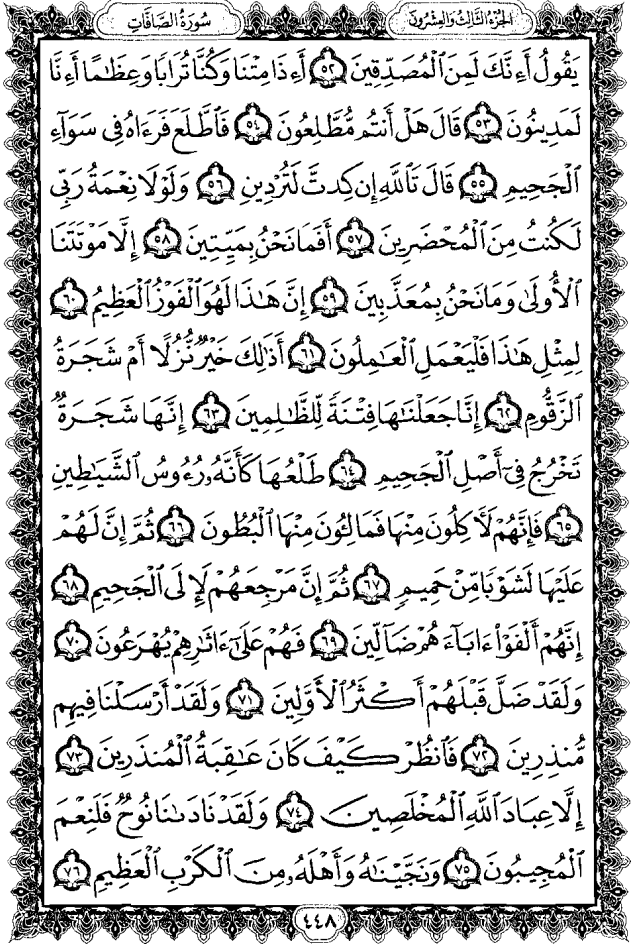 الجزء الثالث والعشرون
سُورَةُ الصَّافَّات
يَقُولُ أَءِنَّكَ لَمِنَ ٱلْمُصَدِّقِينَ ٥٢ أَءِذَا مِتْنَا وَكُنَّا تُرَابًا وَعِظَٰمًا أَءِنَّا
لَمَدِينُونَ ٥٣ قَالَ هَلْ أَنتُم مُّطَّلِعُونَ ٥٤ فَٱطَّلَعَ فَرَءَاهُ فِى سَوَآءِ
ٱلْجَحِيمِ ٥٥ قَالَ تَٱللَّهِ إِن كِدتَّ لَتُرْدِينِ ٥٦ وَلَوْلَا نِعْمَةُ رَبِّى
لَكُنتُ مِنَ ٱلْمُحْضَرِينَ ٥٧ أَفَمَا نَحْنُ بِمَيِّتِينَ ٥٨ إِلَّا مَوْتَتَنَا
ٱلْأُولَىٰ وَمَا نَحْنُ بِمُعَذَّبِينَ ٥٩ إِنَّ هَٰذَا لَهُوَ ٱلْفَوْزُ ٱلْعَظِيمُ ٦٠
لِمِثْلِ هَٰذَا فَلْيَعْمَلِ ٱلْعَٰمِلُونَ ٦١ أَذَٰلِكَ خَيْرٌ نُّزُلًا أَمْ شَجَرَةُ
ٱلزَّقُّومِ ٦٢ إِنَّا جَعَلْنَٰهَا فِتْنَةً لِّلظَّٰلِمِينَ ٦٣ إِنَّهَا شَجَرَةٌ
تَخْرُجُ فِىٓ أَصْلِ ٱلْجَحِيمِ ٦٤ طَلْعُهَا كَأَنَّهُۥ رُءُوسُ ٱلشَّيَٰطِينِ
٦٥ فَإِنَّهُمْ لَءَاكِلُونَ مِنْهَا فَمَالِـُٔونَ مِنْهَا ٱلْبُطُونَ ٦٦ ثُمَّ إِنَّ لَهُمْ
عَلَيْهَا لَشَوْبًا مِّنْ حَمِيمٍ ٦٧ ثُمَّ إِنَّ مَرْجِعَهُمْ لَإِلَى ٱلْجَحِيمِ ٦٨
إِنَّهُمْ أَلْفَوْا۟ ءَابَآءَهُمْ ضَآلِّينَ ٦٩ فَهُمْ عَلَىٰٓ ءَاثَٰرِهِمْ يُهْرَعُونَ ٧٠
وَلَقَدْ ضَلَّ قَبْلَهُمْ أَكْثَرُ ٱلْأَوَّلِينَ ٧١ وَلَقَدْ أَرْسَلْنَا فِيهِم
مُّنذِرِينَ ٧٢ فَٱنظُرْ كَيْفَ كَانَ عَٰقِبَةُ ٱلْمُنذَرِينَ ٧٣
إِلَّا عِبَادَ ٱللَّهِ ٱلْمُخْلَصِينَ ٧٤ وَلَقَدْ نَادَىٰنَا نُوحٌ فَلَنِعْمَ
ٱلْمُجِيبُونَ ٧٥ وَنَجَّيْنَٰهُ وَأَهْلَهُۥ مِنَ ٱلْكَرْبِ ٱلْعَظِيمِ ٧٦
٤٤٨